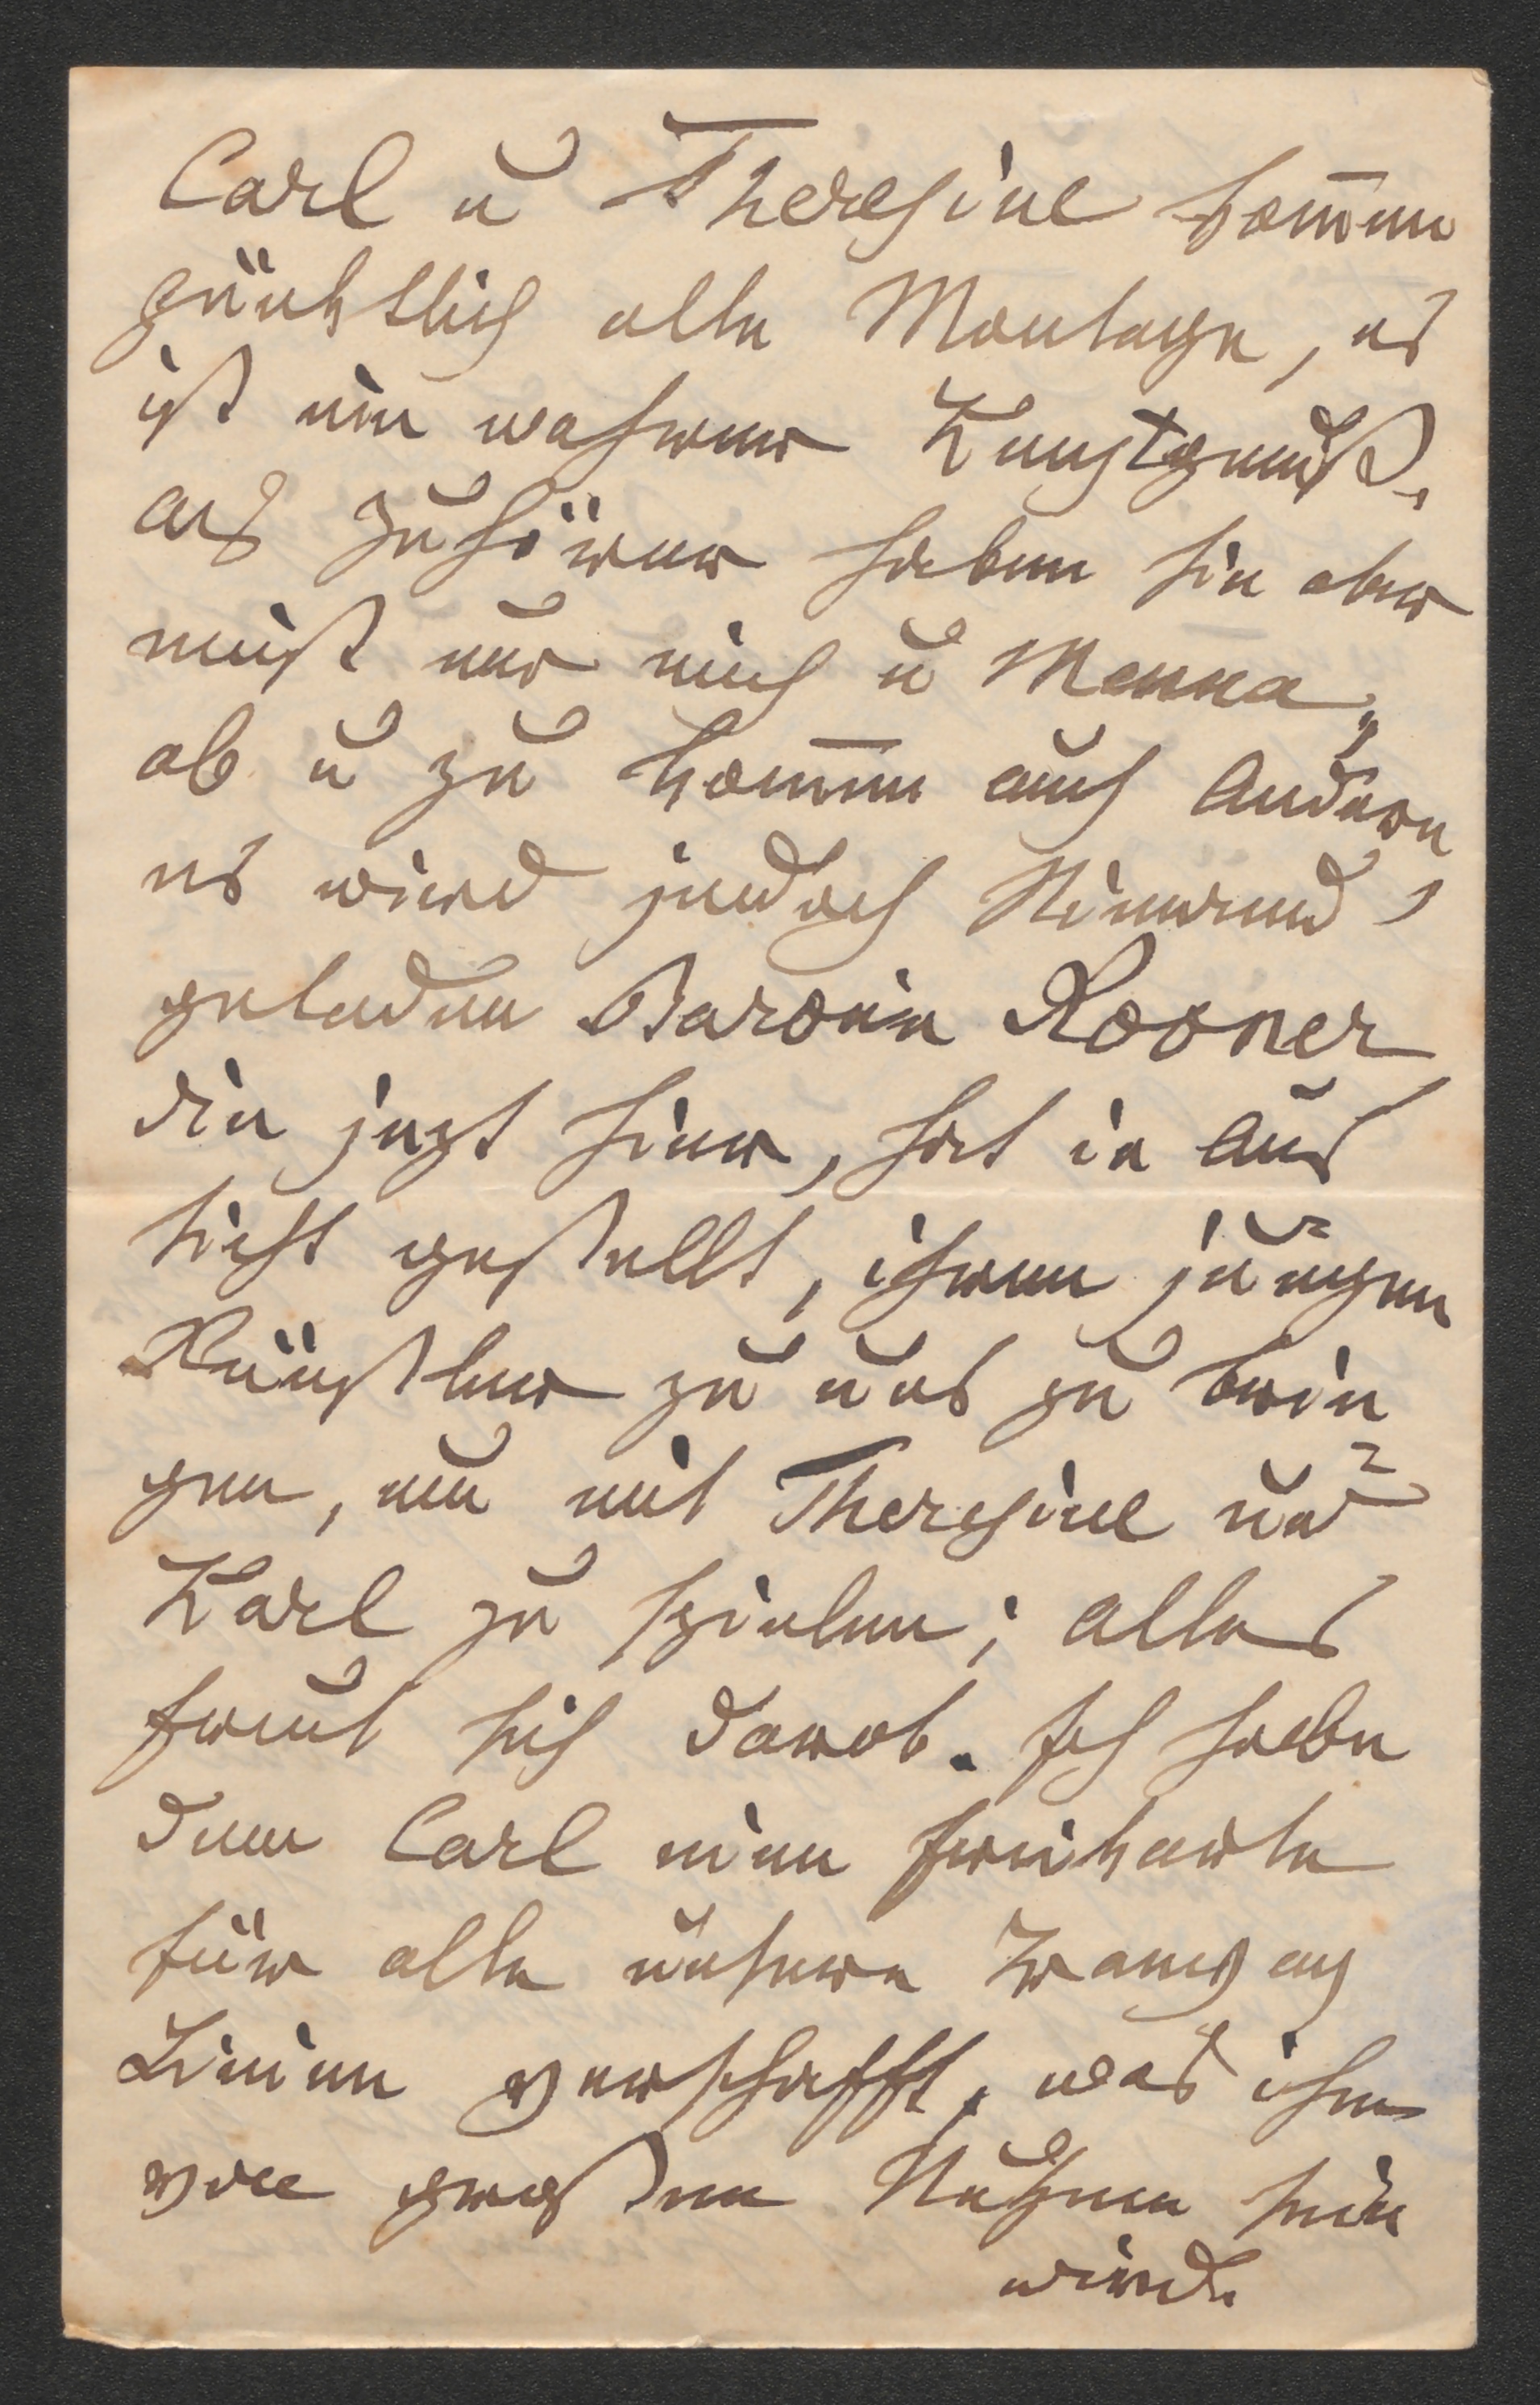 Carl u Theresine kom̅en
pünktlich alle Montage, es
ist ein wahrer Kunstgenuß.
als Zuhörer haben sie aber
meist nur mich u Menna,
ab u zu kom̅en auch Andere,
es wird jedoch Niemand
geladen Baronin Rosner
die jezt hier, hat in Aus
sicht gestellt, ihren jungen
Künstler zu uns zu brin
gen, um mit Theresine und
Karl zu spielen; alles
freut sich darob. Ich habe
dem Carl eine Freikarte
für alle unsere Tramway
Linien verschafft, was ihm
von großem Nutzen sein
wird.